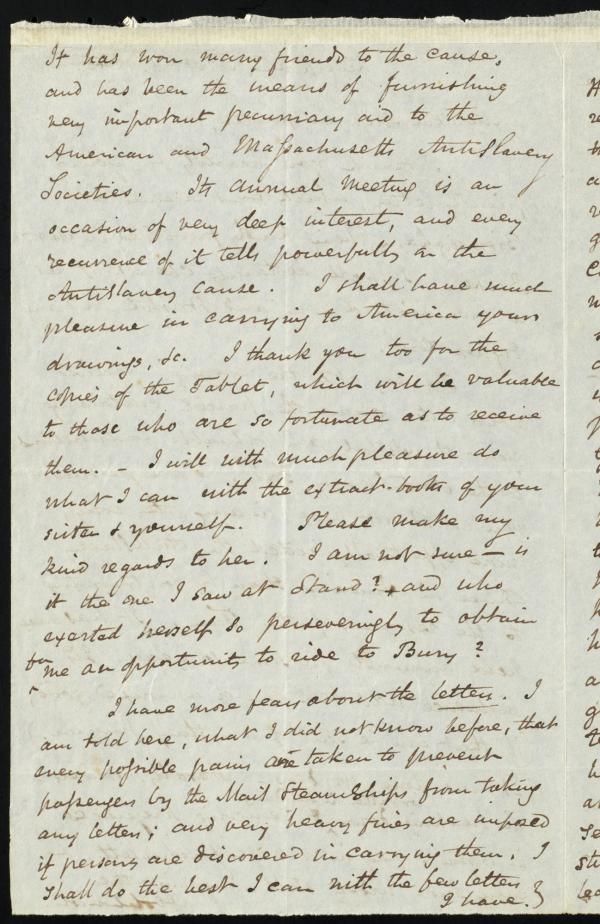 It has won many friends to the cause,
and has been the means of furnishing
very important pecuniary aid to the
American and Massachusetts AntiSlavery
Societies. Its annual Meeting is an
occasion of very deep interest, and every
recurrence of it tells powerfully on the
AntiSlavery cause. I shall have much
pleasure in carrying to America your
drawings, &c. I thank you too for the
copies of the Tablet, which will be valuable
to those who are so fortunate as to receive
them. – I will with much pleasure do
what I can with the extract-books of your
sister & yourself. Please make my
kind regards to her. I am not sure – is
it the one I saw at Stand? and who
exerted herself so perseveringly to obtain
for me an opportunity to ride to Bury?
I have more fears about the letters. I
am told here, what I did not know before, that
every possible pains are taken to prevent
passengers by the Mail SteamShips from taking
any letters; and very heavy fines are imposed
if persons are discovered in carrying them. I
shall do the best I can with the few letters
I have.